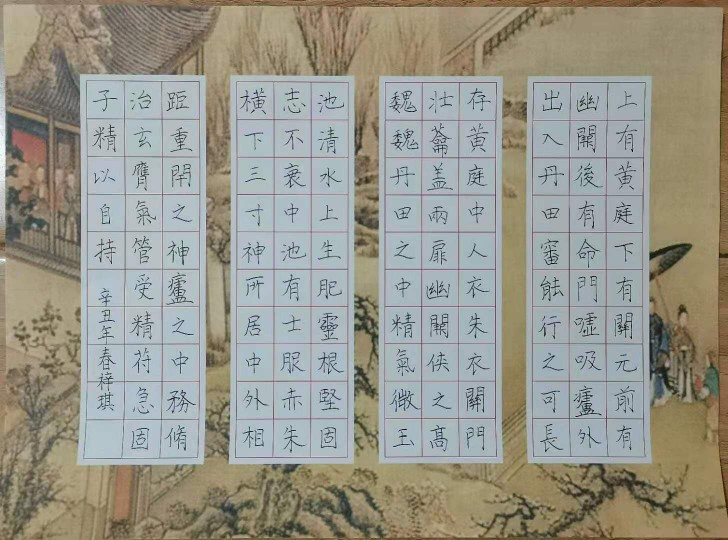 上有黃庭下有關元前有
幽關後有命門噓吸廬外
出入丹田審能行之可長
存黃庭中人衣朱衣關門
壯蘥蓋兩扉幽關俠之高
魏魏丹田之中精氣微玉
池清水上生肥靈根堅固
志不衰中池有士服赤朱
橫下三寸神所居中外相
距重閇之神廬之中務脩
治玄膺氣管受精苻急固
子精以自持
辛丑年春梓琪